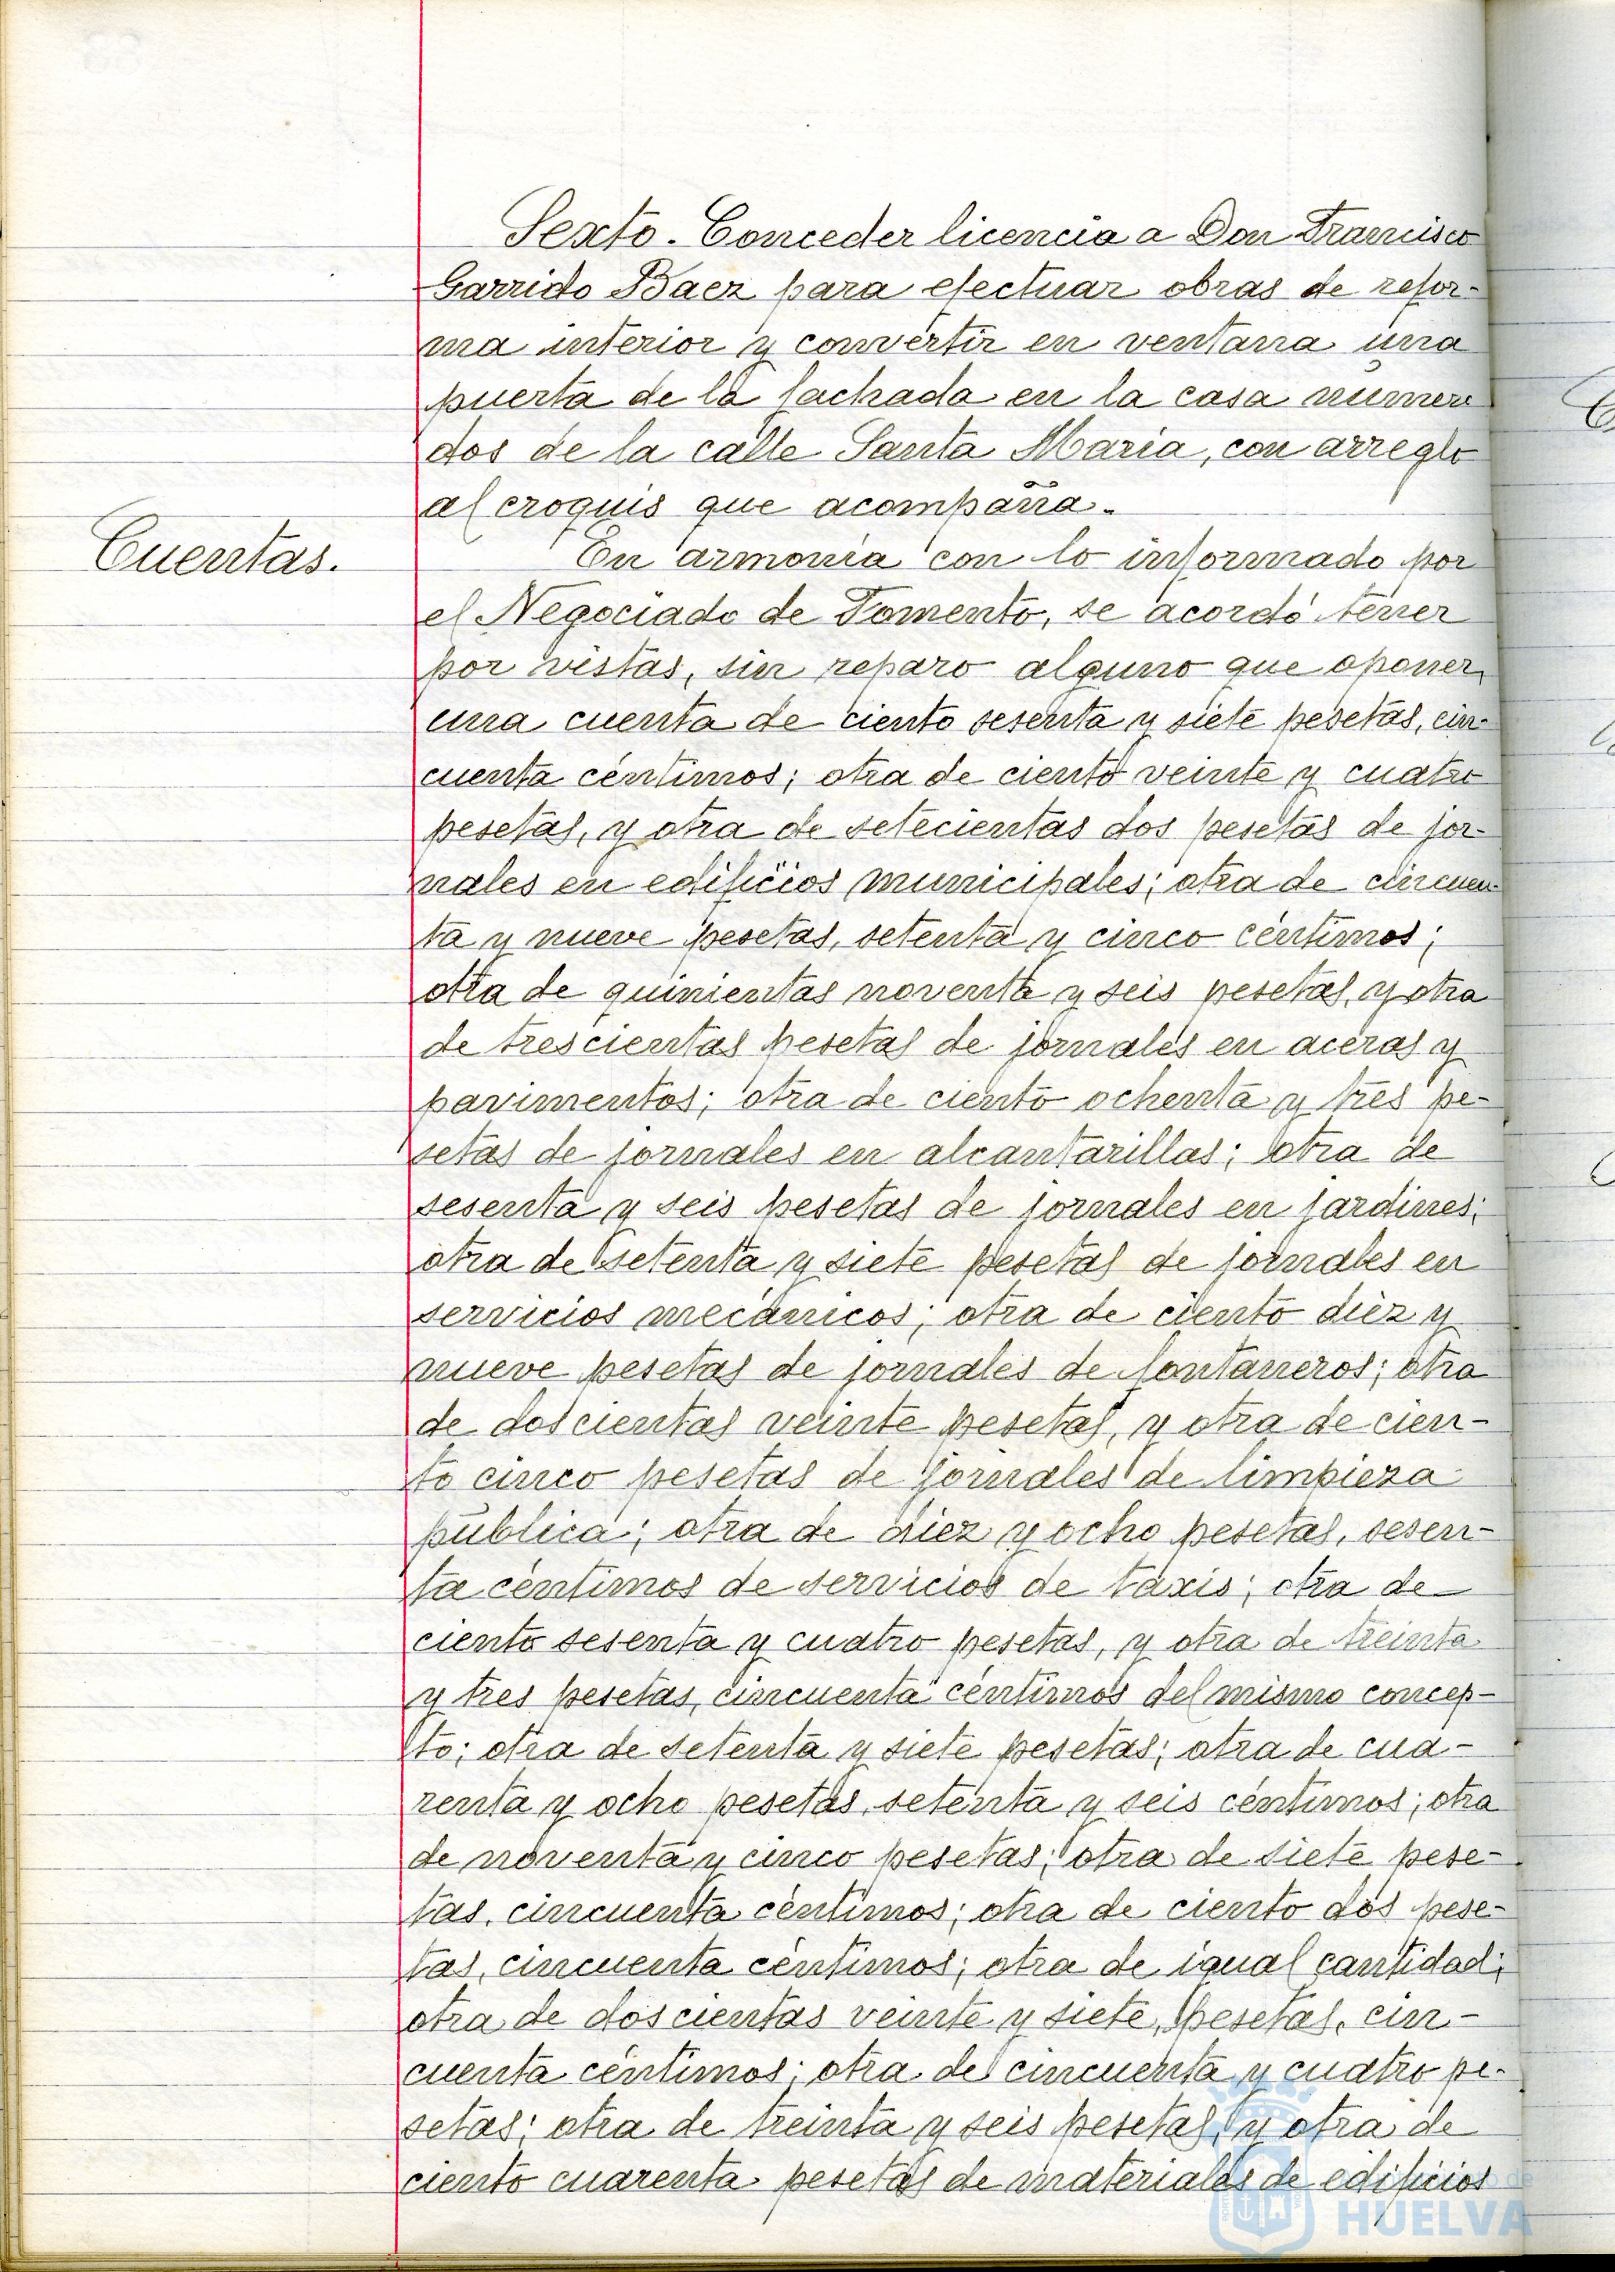 Sexto. Conceder licencia a Don Francisco
Garrido Baez para efectuar obras de refor-
ma interior y convertir en ventana una
puerta de la fachada en la casa número
dos de la calle Santa María, con arreglo
al croquis que acompaña.
Cuentas.
En armonía con lo informado por
el Negociado de Fomento, se acordó tener
por vistas, sin reparo alguno que oponer,
una cuenta de ciento sesenta y siete pesetas, cin-
cuenta céntimos; otra de ciento veinte y cuatro
pesetas, y otra de setecientas dos pesetas de jor-
nales en edificios municipales; otra de cincuen-
ta y nueve pesetas, setenta y cinco céntimos;
otra de quinientas noventa y seis pesetas, y otra
de trescientas pesetas de jornales en aceras y
pavimentos; otra de ciento ochenta y tres pe-
setas de jornales en alcantarillas; otra de
sesenta y seis pesetas de jornales en jardines;
otra de setenta y siete pesetas de jornales en
servicios mecánicos; otra de ciento diez y
nueve pesetas de jornales de fontaneros; otra
de doscientas veinte pesetas, y otra de cien-
to cinco pesetas de jornales de limpieza
pública; otra de diez y ocho pesetas, sesen-
ta céntimos de servicios de taxis; otra de
ciento sesenta y cuatro pesetas, y otra de treinta
y tres pesetas, cincuenta céntimos del mismo concep-
to; otra de setenta y siete pesetas; otra de cua-
renta y ocho pesetas, setenta y seis céntimos; otra
de noventa y cinco pesetas; otra de siete pese-
tas, cincuenta céntimos; otra de ciento dos pese-
tas, cincuenta céntimos; otra de igual cantidad;
otra de doscientas veinte y siete, pesetas, cin-
cuenta céntimos; otra de cincuenta y cuatro pe-
setas; otra de treinta y seis pesetas, y otra de
ciento cuarenta pesetas de materiales de edificios
HUELVA